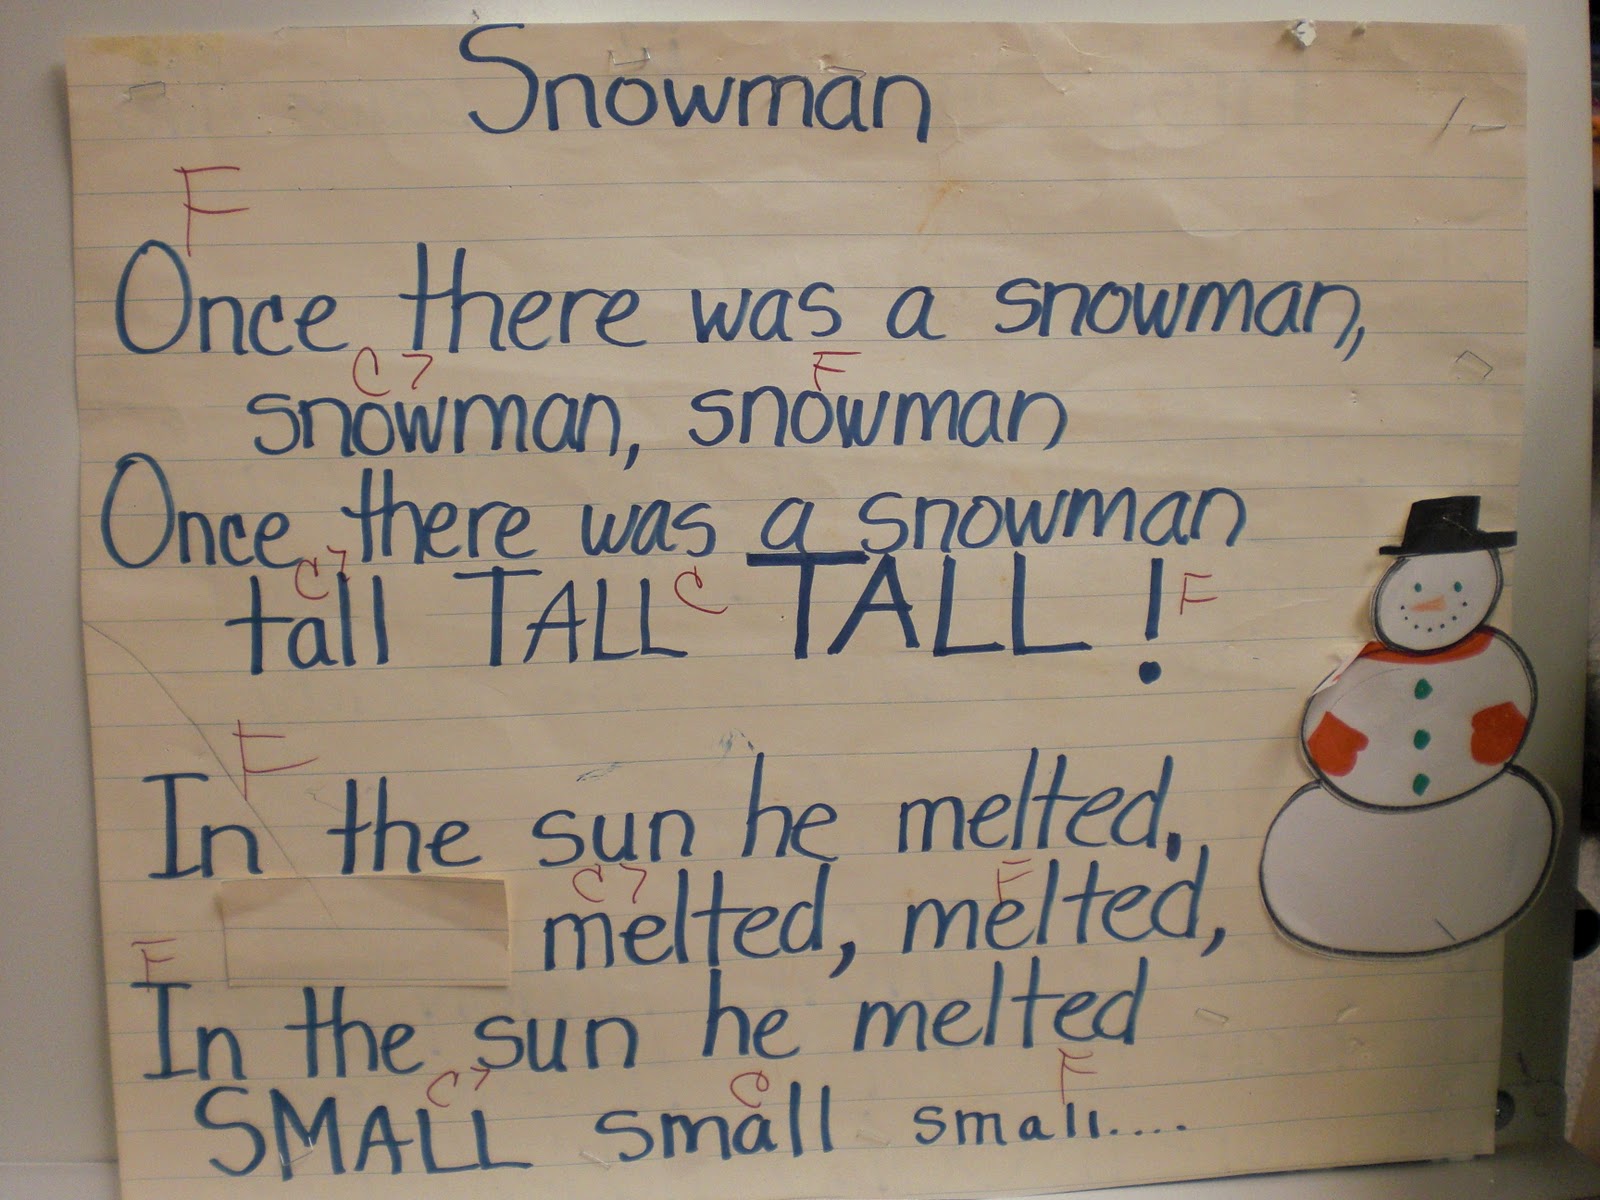 Snowman
F
Once there was a snowman,
C7 F
snowman, snowman
Once there was a snowman
C7 C F
tall TALL TALL!
F
In the sun he melted,
C7 F
melted, melted,
F
In the sun he melted
C7 C F
SMALL small small....